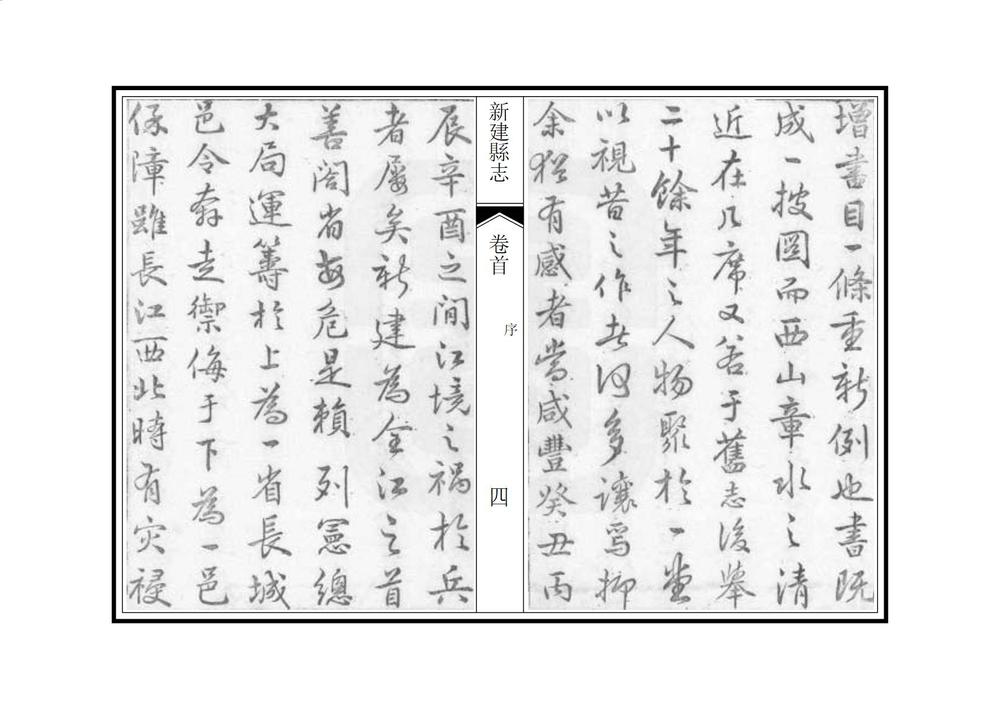 增書目一條重新例也書既
成一披圖而西山章水之清
近在几席又若于舊志後舉
二十餘年之人物聚於一堂
以視昔之作者何多讓焉抑
余猶有感者當咸豐癸丑丙
新建縣志
卷首
序
四
辰辛酉之間江境之禍於兵
者屢矣新建為全江之首
善閤省安危是賴列憲總
大局運籌於上為一省長城
邑令奔走禦侮于下為一邑
保障雖長江西北時有灾祲